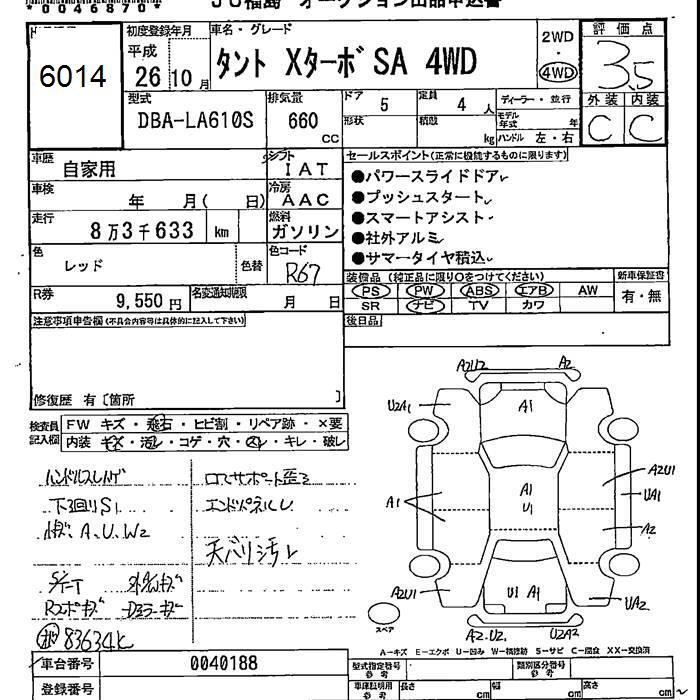 *0046870*
JU福島 オークション出品申込書
6014
初度登録年月
平成 26 10 月
車名・グレード
タント Xターボ SA 4WD
2WD
・
4WD
評価点
3.5
外装 内装
C C
型式
DBA-LA610S
排気量
660 CC
ドア 5
形状
定員 4 人
積載 kg
ディーラー・並行
モデル年式 年
ハンドル 左・右
車歴 自家用
シフト IAT
車検 年 月( 日)
冷房 AAC
走行 8万3千633 km
燃料 ガソリン
色 レッド 色替
色コード R67
R券 9,550 円
名変通知期限 月 日
セールスポイント(正常に機能するものに限ります)
●パワースライドドア
●プッシュスタート
●スマートアシスト
●社外アルミ
●サマータイヤ積込
装備品 (純正品に限り○をつけてください)
PS PW ABS エアB AW
SR ナビ TV カワ
新車保証書
有・無
後日品
注意事項申告欄(不具合内容等は具体的に記入して下さい)
修復歴 有〔箇所 〕
検査員記入欄
FW キズ・飛石・ヒビ割・リペア跡・×要
内装 キズ・汚レ・コゲ・穴・凹・キレ・破レ
ハンドルスレ
下廻りS1
A、U、W2
ロアサポート歪
エンドパネルU
天バリ汚レ
83634K
A2U2 A2
U2A1 A1
A2U1
A1 A1 UA1
U1
A2
A2U1 U1 A1 UA2
スペア
A2.U2. U2A2
A-キズ E-エクボ U-凹み W-補修跡 S-サビ C-腐食 XX-交換済
車台番号 0040188
登録番号
型式指定番号 参考
類別区分番号 参考
車庫証明用 参考 長さ cm 幅 cm 高さ cm